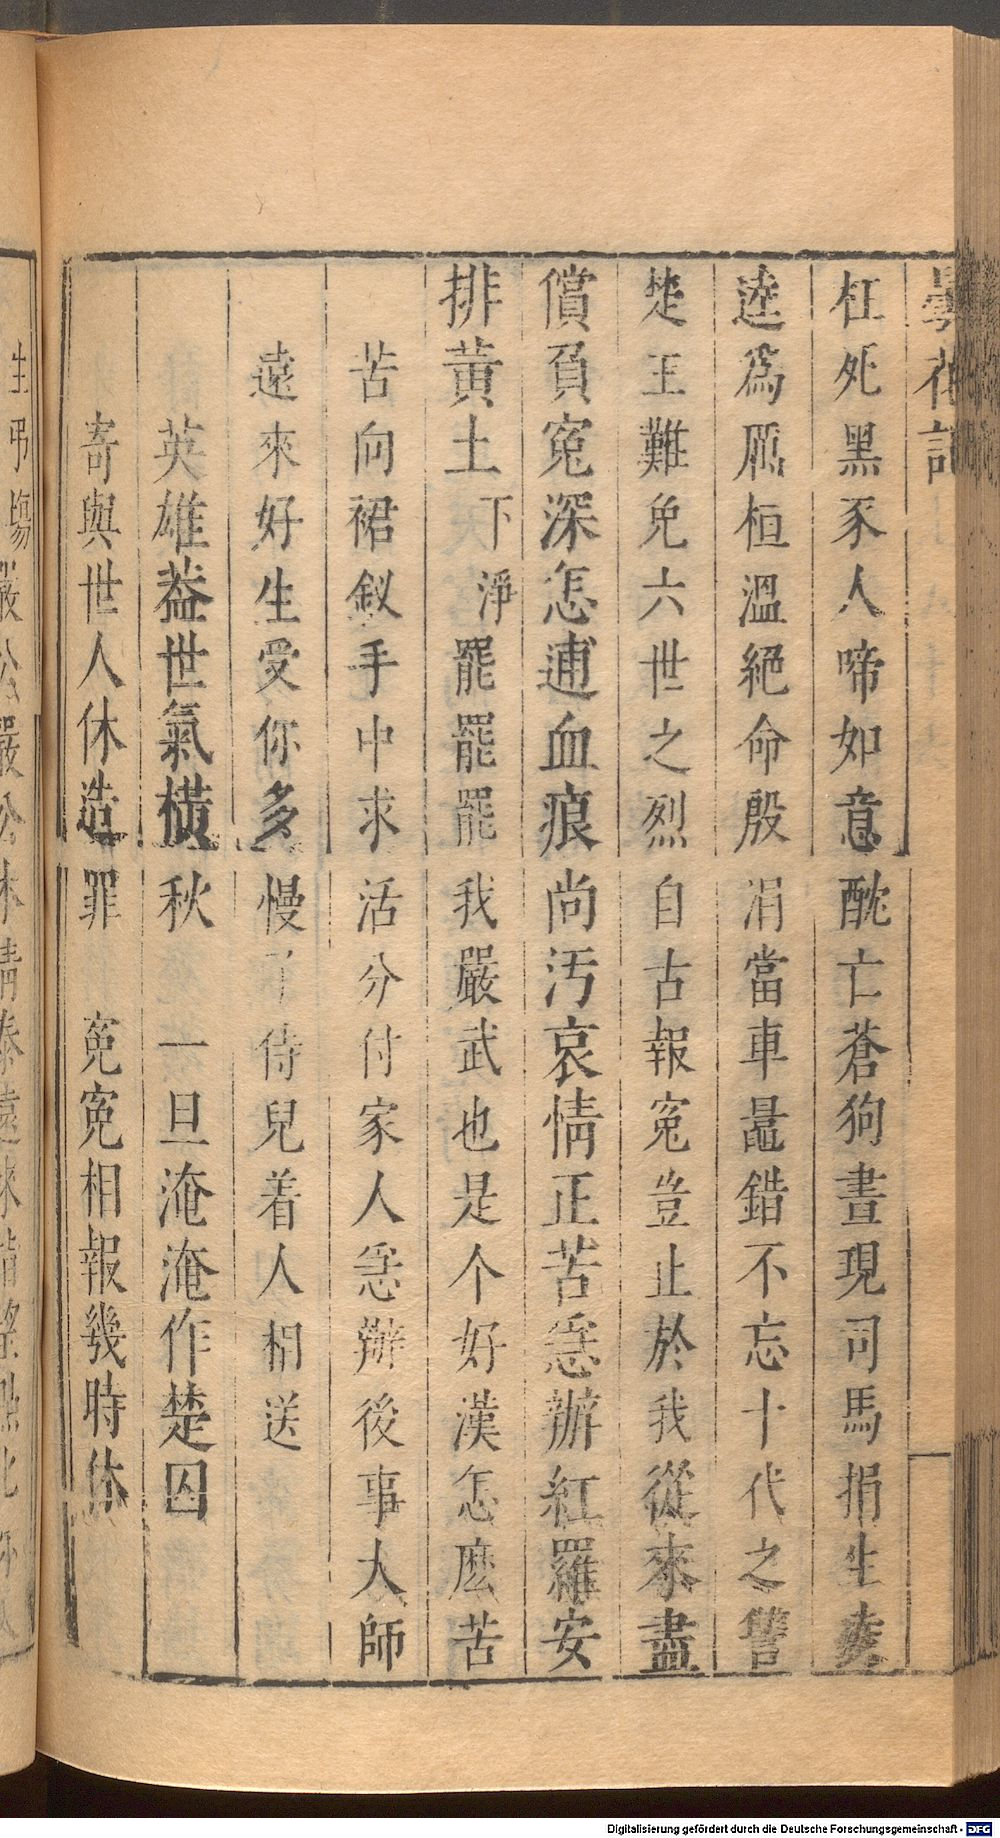 曇花記
枉死黑豕人啼如意酖亡蒼狗晝現司馬捐生夌
逵爲厲桓溫絕命殷涓當車鼂錯不忘十代之讐
楚王難免六世之烈自古報寃豈止於我從來盡
償負寃深怎逋血痕尚污哀情正苦急辦紅羅安
排黃土下淨罷罷罷我嚴武也是个好漢怎麽苦
苦向裙釵手中求活分付家人急辦後事大師
遠來好生受你多慢了侍兒着人相送
英雄葢世氣橫秋 一旦淹淹作楚囚
寄與世人休造罪 寃寃相報幾時休
Digitalisierung gefördert durch die Deutsche Forschungsgemeinschaft - DFG